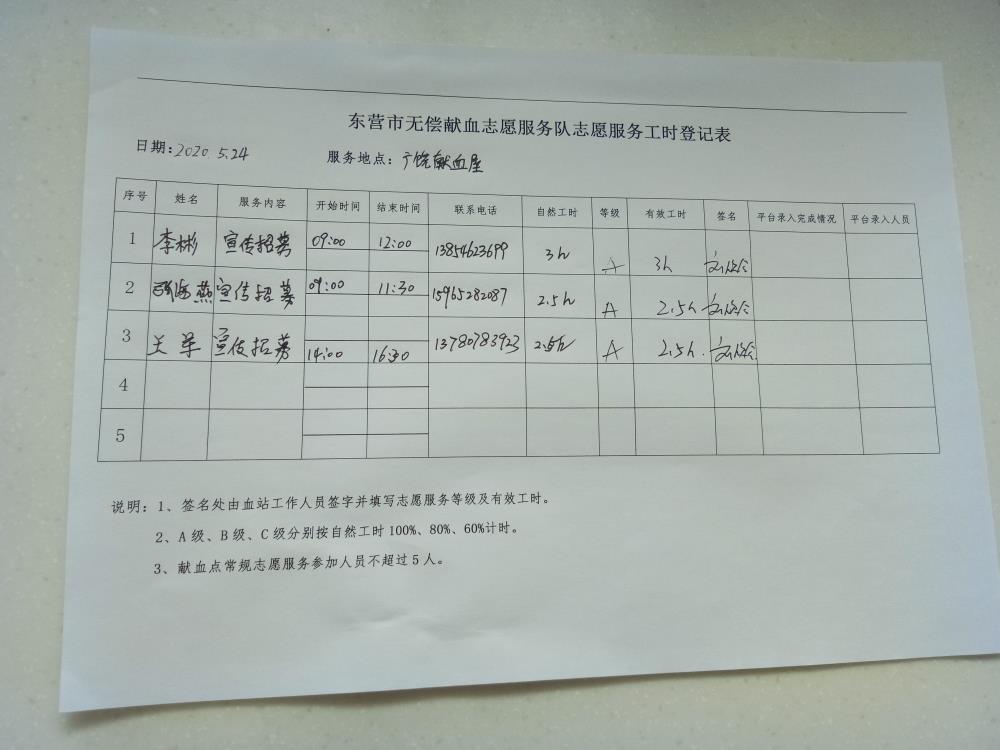 东营市无偿献血志愿服务队志愿服务工时登记表
日期:2020.5.24 服务地点:广饶献血屋
序号 姓名 服务内容 开始时间 结束时间 联系电话 自然工时 等级 有效工时 签名 平台录入完成情况 平台录入人员
1 李彬 宣传招募 09:00 12:00 13854623699 3h A 3h
2 张海燕 宣传招募 09:00 11:30 15965282087 2.5h A 2.5h
3 王军 宣传招募 14:00 16:30 13780783923 2.5h A 2.5h.
4
5
说明:1、签名处由血站工作人员签字并填写志愿服务等级及有效工时。
2、A级、B级、C级分别按自然工时100%、80%、60%计时。
3、献血点常规志愿服务参加人员不超过5人。